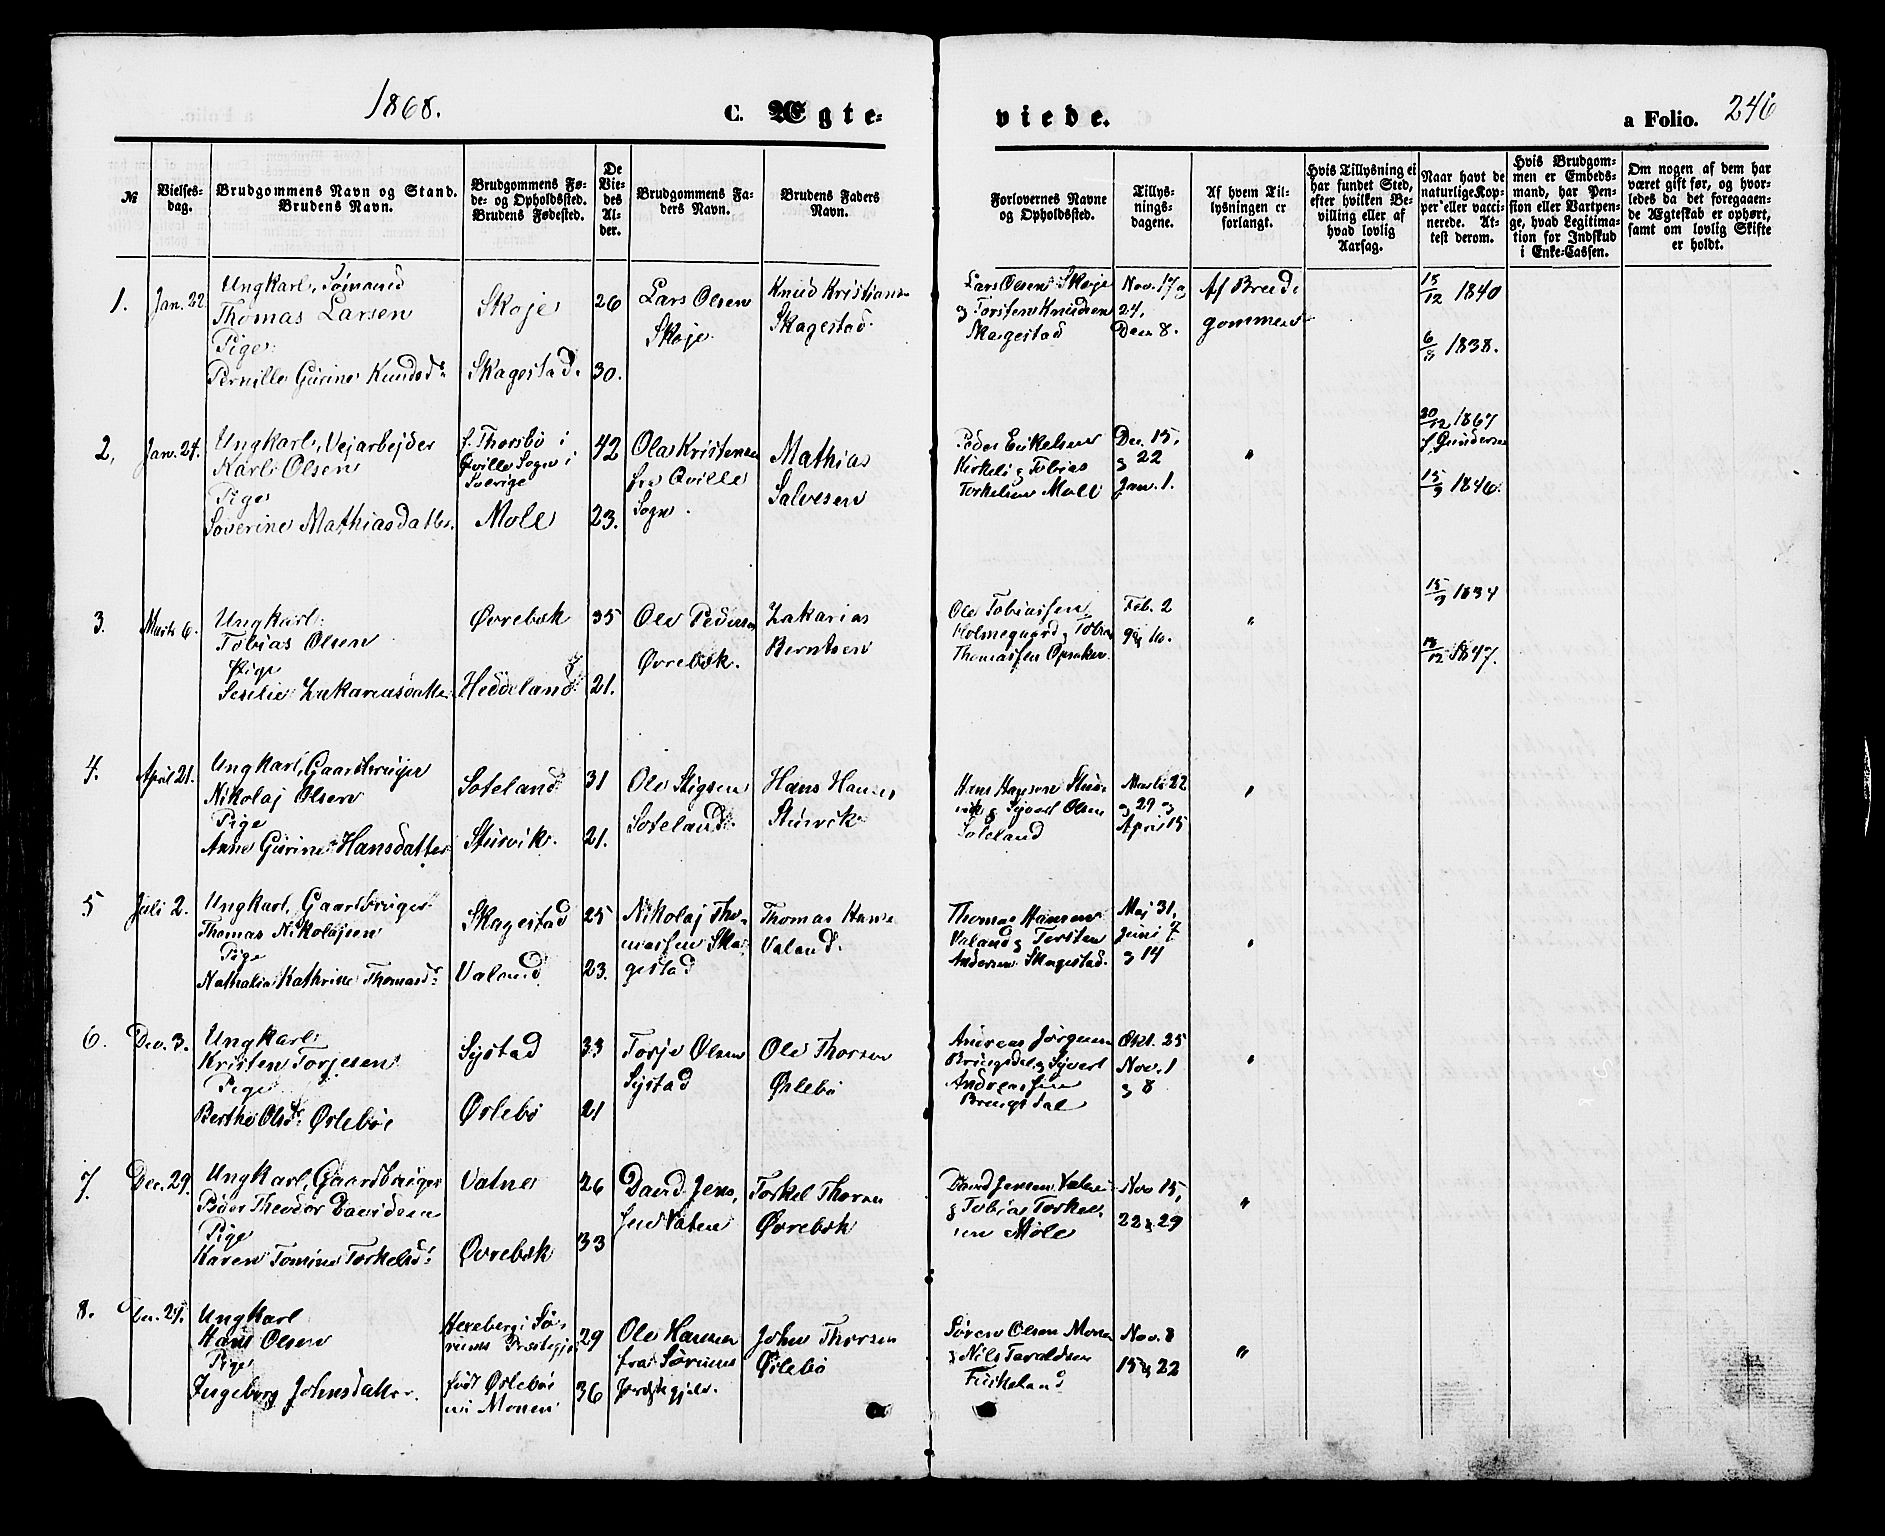 1868.
C. Ægte-
viede.
a Folio. 246
№
Vielses-
dag.
Brudgommens Navn og Stand.
Brudens Navn.
Brudgommens Fø-
de- og Opholdssted.
Brudens Fødested.
De
Vie-
des
Al-
der.
Brudgommens Fa-
ders Navn.
Brudens Faders
Navn.
Forlovernes Navne
og Opholdssted.
Tillys-
nings-
dagene.
Af hvem Til-
lysningen er
forlangt.
Hvis Tillysning ei
har fundet Sted,
efter hvilken Be-
villing eller af
hvad lovlig
Aarsag.
Naar havt de
naturlige Kop-
per eller vacci-
nerede. At-
test derom.
Hvis Brudgom-
men er Embeds-
mand, har Pen-
sion eller Vartpen-
ge, hvad Legitima-
tion for Indskud
i Enke-Cassen.
Om nogen af dem har
været gift før, og hvor-
ledes da det foregaaen-
de Ægteskab er ophørt,
samt om lovlig Skifte
er holdt.
1. Jan. 22
Ungkarl, Sømand
Thomas Larsen
Pige
Pernille Gurine Knudsd.
Skoje
Skagestad.
26
30.
Lars Olsen
Skoje
Knud Kristians
Skagestad.
Lars Olsen Skoje
& Torsten Knudsen
Skagestad
Nov. 17 &
24,
Dec 8.
Af Brud-
gommen
15/12 1840
6/8 1838.
2, Jan. 24.
Ungkarl, Vejarbejder
Karl Olsen
Pige
Severine Mathiasdatter.
f. Thorsbö i
Qville Sogn i
Sverige
Mole
42
23.
Ola Kristensen
fra Qville
Sogn.
Mathias
Salvesen
Peder Erikelsen
Kirkeli & Tobias
Torkelsen Mole
Dec. 15,
& 22
Jan. 1.
"
20/12 1867
f. Gundersen
15/9 1846.
3. Marts 6.
Ungkarl
Tobias Olsen
Pige
Sesilie Zakariasdatter
Øvrebøk
Heddeland
35
21.
Ole Pedersen
Øvrebøk.
Zakarias
Berntsen
Ole Tobiassen
Holmegaard & Tobias
Thomassen Opsaker
Feb. 2
9 & 16.
"
15/9 1834
13/12 1847.
4. April 21.
Ungkarl, Gaardbruger
Nikolaj Olsen
Pige
Anne Gurine Hansdatter
Soteland
Stusvik.
31
21.
Ole Stigsen
Soteland.
Hans Hansen
Stusvik
Hans Hansen Stus-
vik & Sijvert Olsen
Soteland
Marts 22
& 29 &
April 15
"
5 Juli 2.
Ungkarl, Gaardbruger
Thomas Nikolajsen
Pige
Nathalia Kathrine Thomasd.
Skagestad
Valand
25
23.
Nikolaj Tho-
massen Ska-
gestad
Thomas Hans
Valand.
Thomas Hansen
Valand & Torsten
Andersen Skagestad.
Maj 31,
Juni 7
& 14
"
6. Dec. 3.
Ungkarl
Kristen Torjesen
Pige
Berthe Olsd. Øslebøe
Sijstad
Øslebö
33
21
Torje Olsen
Sijstad
Ole Thorsen
Øslebö
Andreas Jörgensen
Bringsdal & Sijvert
Andreassen
Bringsdal
Okt. 25
Nov. 1
& 8
"
7. Dec. 29.
Ungkarl, Gaardbruger
Peder Theodor Davidsen
Pige
Karen Tomine Torkelsd.
Vatne
Øvrebøk
26
33
David Jens-
sen Vatne
Torkel Thorsen
Øvrebøk
David Jensen Vatne
& Tobias Torkel-
sen Mole
Nov 15,
22 & 29
"
8. Dec. 29.
Ungkarl
Hans Olsen
Pige
Ingeborg Johnsdatter.
Hexeberg i Sø-
rums Præstegj.
født Øslebö
i Monen
29
36
Ole Hansen
fra Sørums
Præstegjeld.
John Thorsen
Øslebö
Sören Olsen Monen
& Nils Taraldsen
Fuskeland
Nov. 8
15 & 22
"